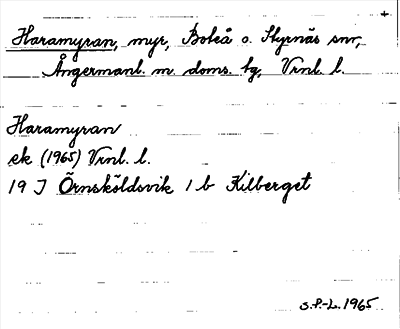 Haramyran, myr, Boteå o. Styrnäs snr,
Ångermanl. m. doms. bg, Vrnl. l.
Haramyran
ek (1965) Vrnl. l.
19 J Örnsköldsvik 1 b Kilberget
S.P.-L. 1965